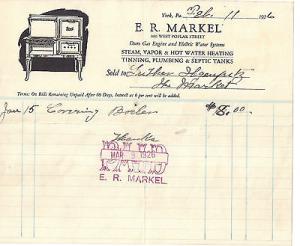 York, Pa. Feb. 11 1926
E. R. MARKEL
WEST POPLAR STREET
Duro Gas Engine and Electric Water Systems
STEAM, VAPOR & HOT WATER HEATING
TINNING, PLUMBING & SEPTIC TANKS
Sold to Luther
Terms: On Bills Remaining Unpaid After 60 Days, Interest at 6 per cent will be added.
Jan 15 Boiler $8.00
Thanks
MAR 9 1926
E. R. MARKEL